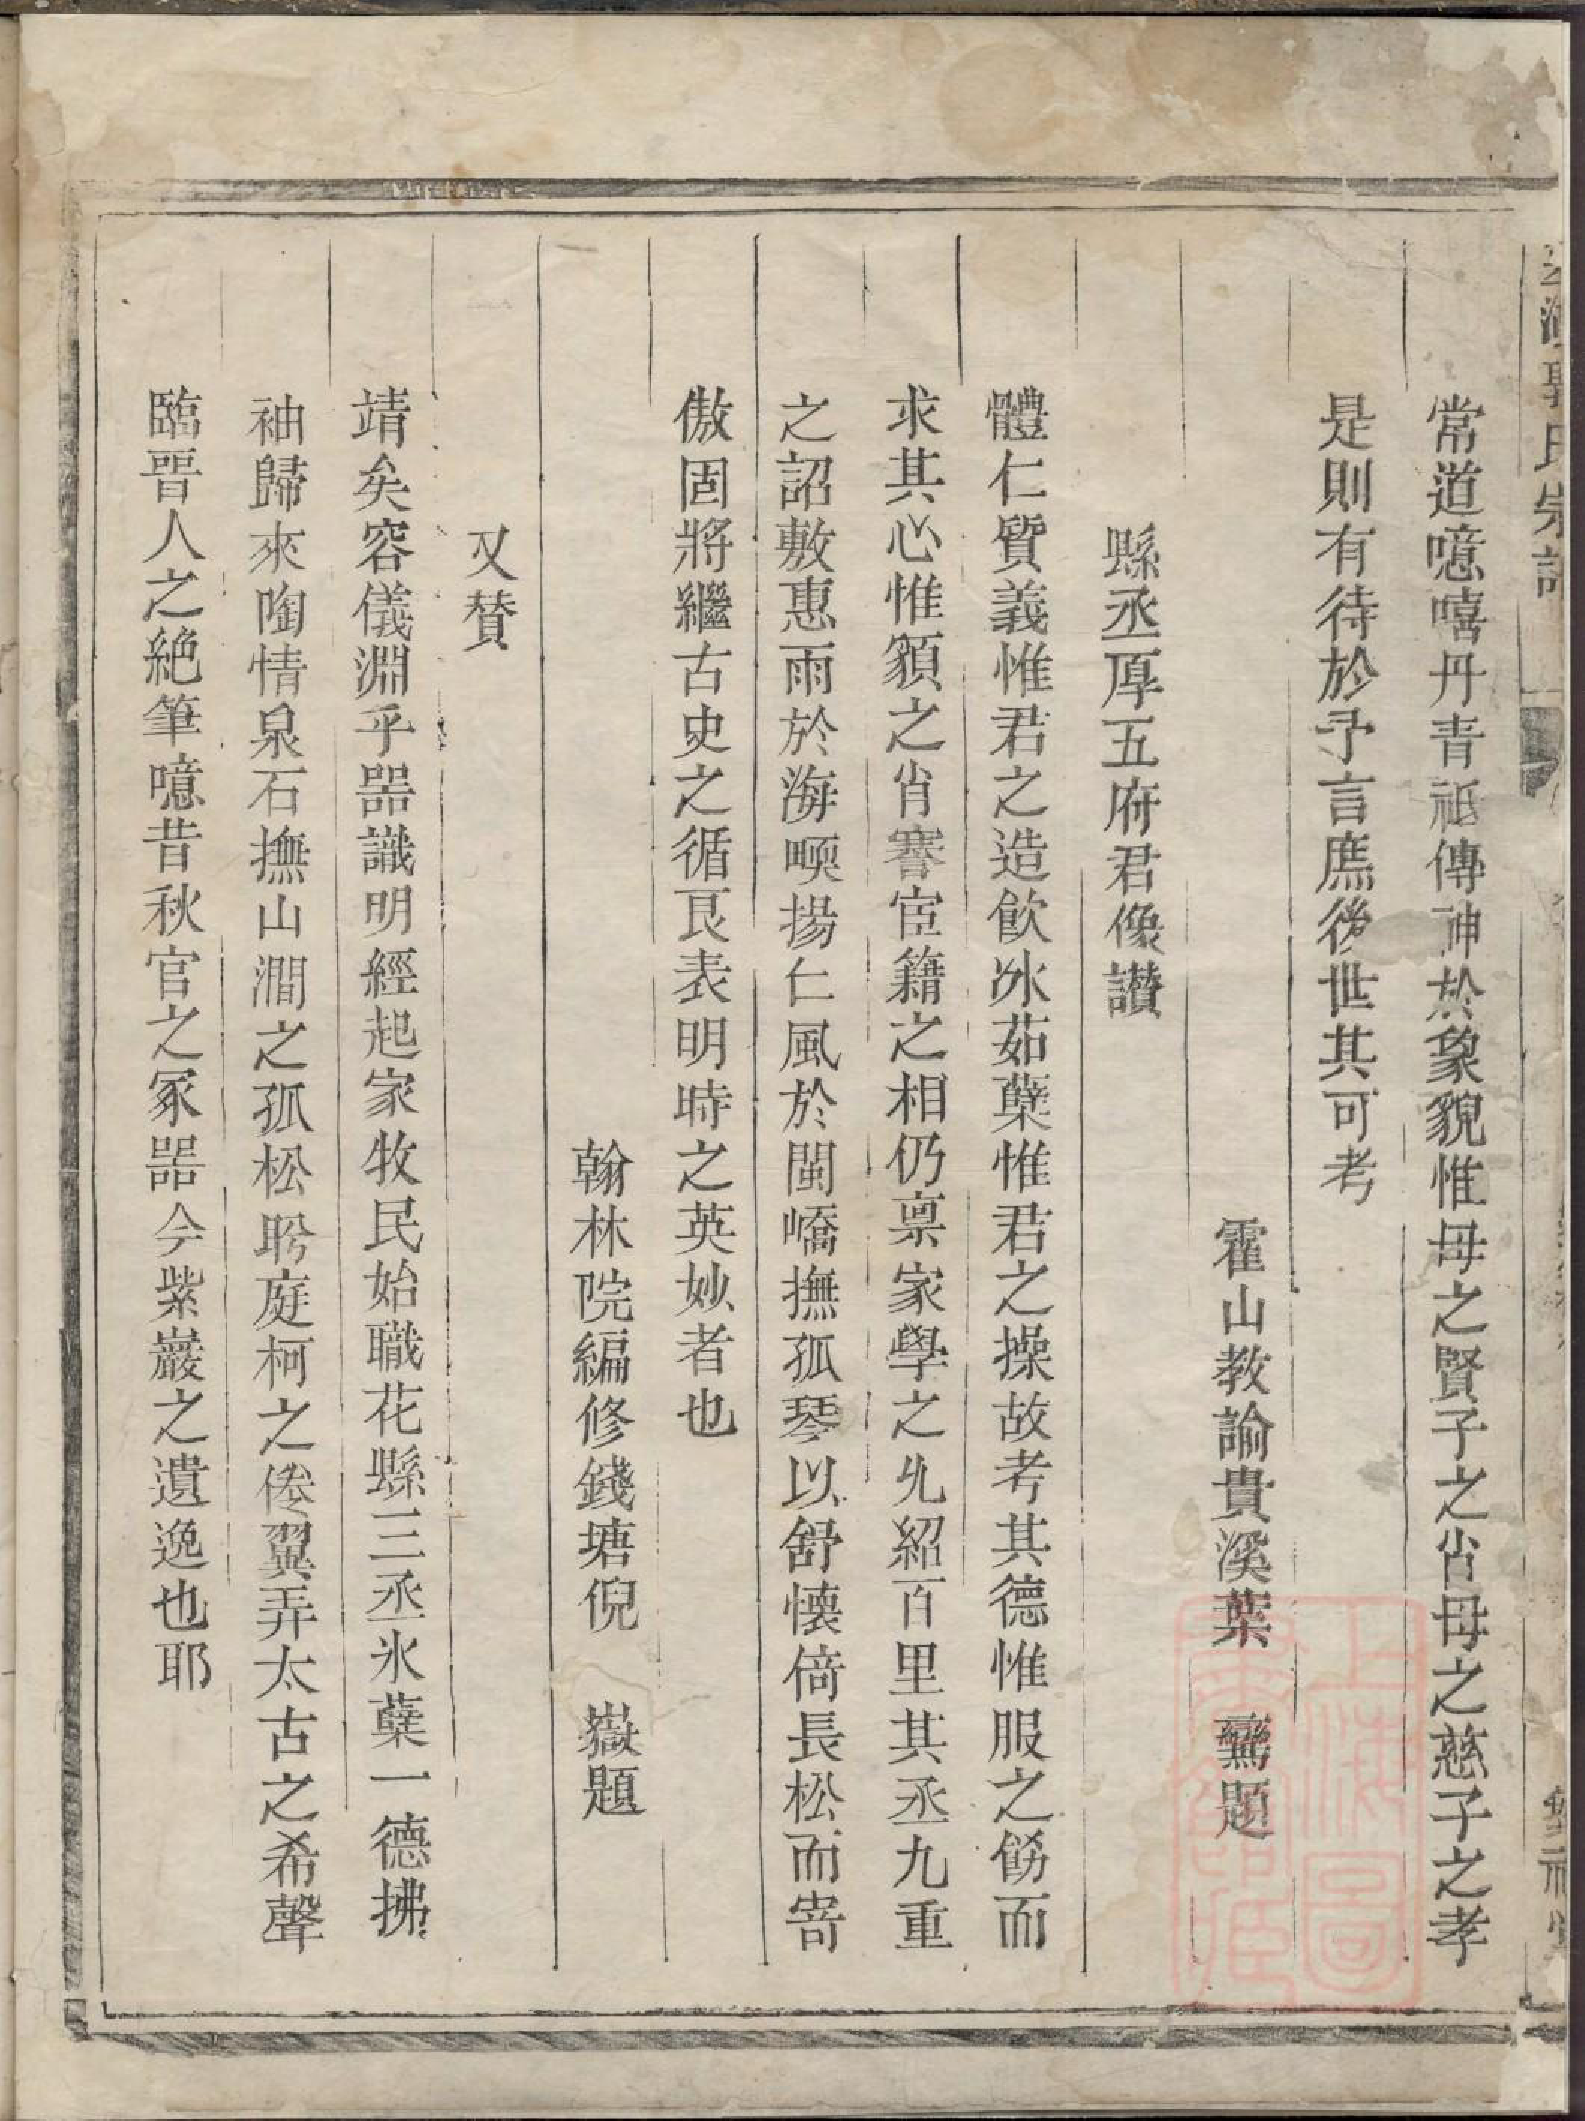 氏宗譜
常道噫嘻丹青祗傳神於象貌惟母之賢子之肖母之慈子之孝
是則有待於予言庶後世其可考
霍山教諭貴溪葉 鸞題
縣丞厚五府君像讃
體仁質義惟君之造飲冰茹蘗惟君之操故考其德惟服之餝而
求其心惟䫉之肖騫宦籍之相仍禀家學之允紹百里其丞九重
之詔敷惠雨於海㬇揚仁風於閩嶠撫孤琴以舒懐倚長松而寄
傲固將繼古史之循良表明時之英妙者也
翰林院編修錢塘倪 嶽題
又賛
靖矣容儀淵乎噐識明經起家牧民始職花縣三丞氷蘗一德拂
袖歸來陶情泉石撫山澗之孤松盻庭柯之倦翼弄太古之希聲
臨晉人之絶筆噫昔秋官之冢噐今紫巖之遺逸也耶
上海圖書館藏